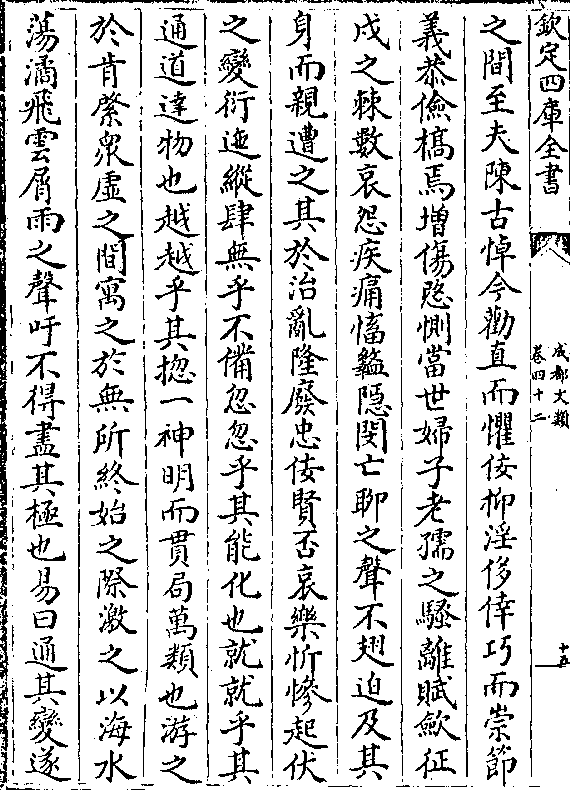 欽定四庫全書
成都文類
卷四十二
十五
之間至夫陳古悼今勸直而懼佞抑淫侈倖巧而崇節
義恭儉槁焉增傷慇惻當世婦子老孺之騷離賦歛征
戍之棘數哀怨疾痛慉盭隱閔亡聊之聲不翅迫及其
身而親遭之其於治亂隆廢忠佞賢否哀樂忻慘起伏
之變衍迤縱肆無乎不備忽忽乎其能化也就就乎其
通道達物也越越乎其揔一神明而貫局萬類也游之
於肯綮衆虛之間寓之於無所終始之際激之以海水
蕩潏飛雲屑雨之聲吁不得盡其極也易曰通其變遂